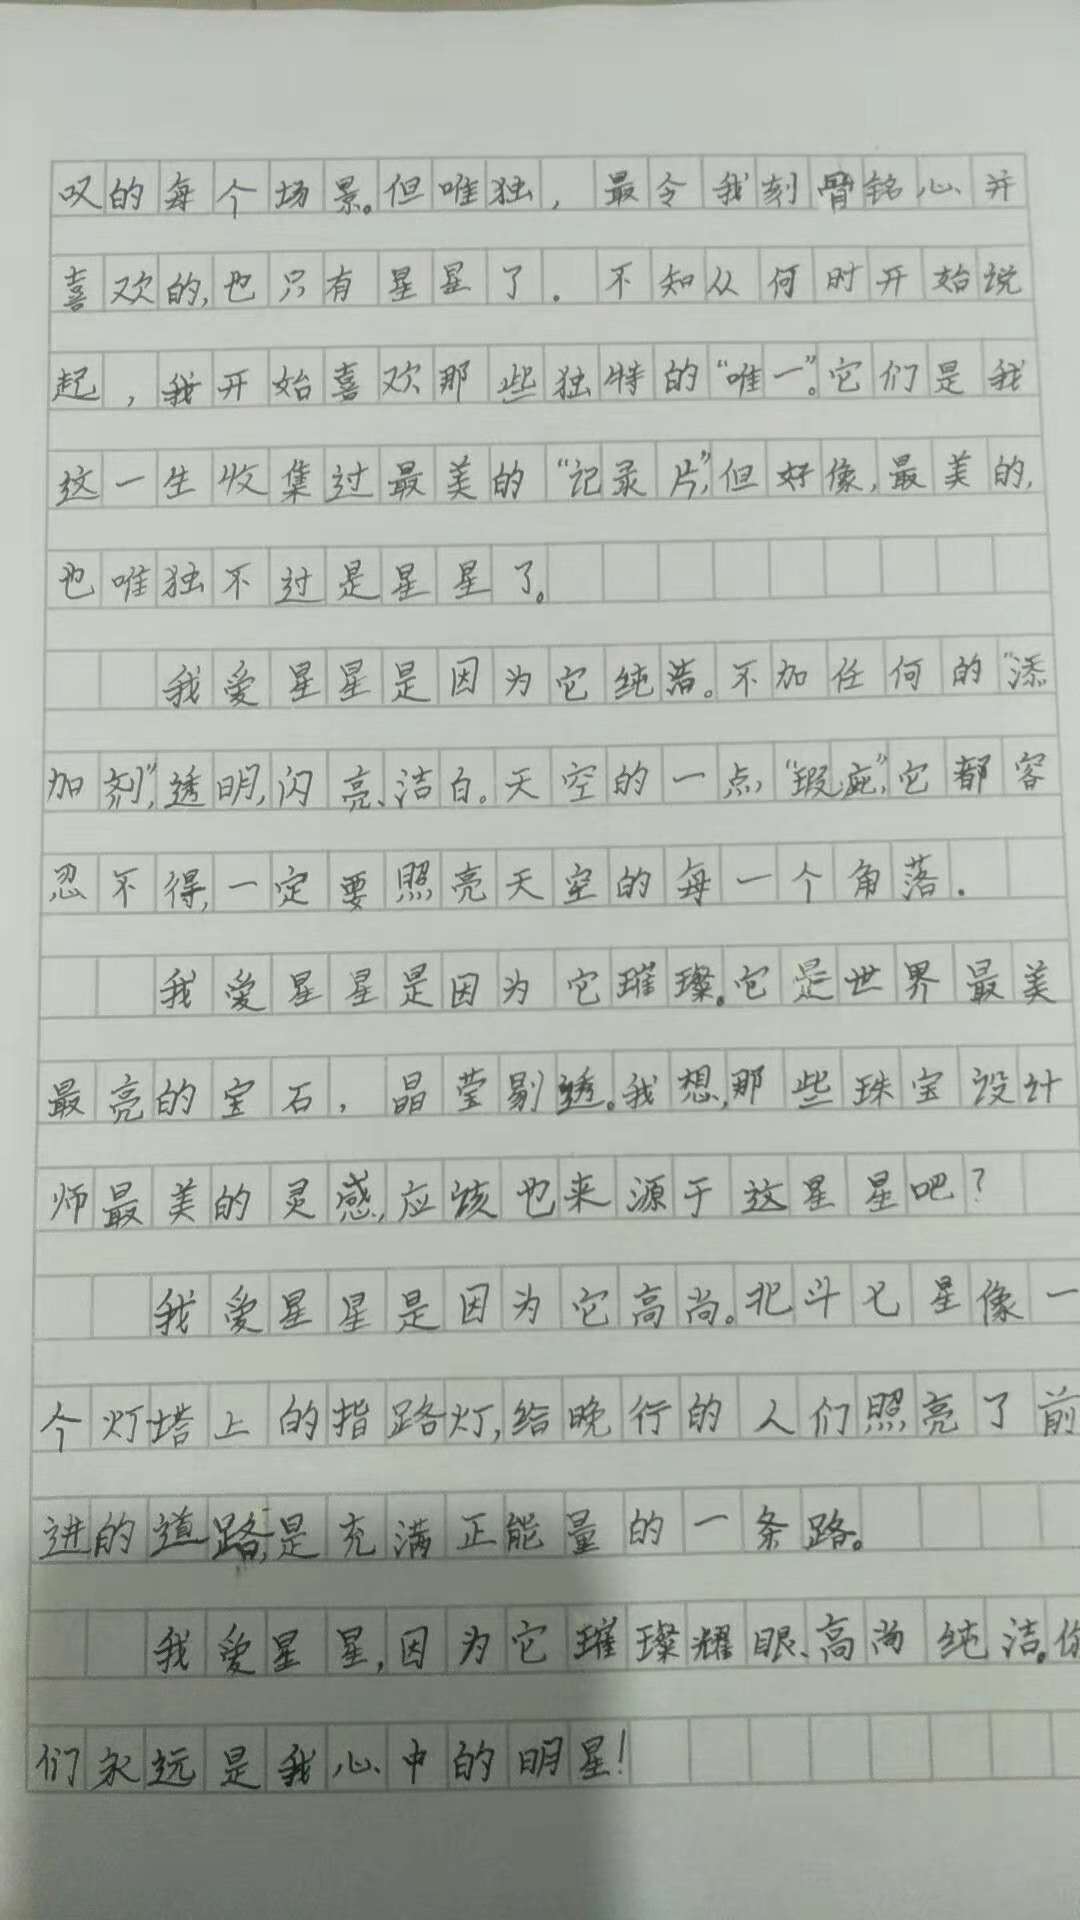 叹的每个场景。但唯独，最令我刻骨铭心并
喜欢的，也只有星星了．不知从何时开始说
起，我开始喜欢那些独特的“唯一”。它们是我
这一生收集过最美的“记录片”，但好像，最美的，
也唯独不过是星星了。
我爱星星是因为它纯洁。不加任何的“添
加剂”，透明，闪亮、洁白。天空的一点，“瑕疵”，它都容
忍不得，一定要照亮天空的每一个角落．
我爱星星是因为它璀璨。它是世界最美
最亮的宝石，晶莹剔透。我想，那些珠宝设计
师最美的灵感，应该也来源于这星星吧？
我爱星星是因为它高尚。北斗七星像一
个灯塔上的指路灯，给晚行的人们照亮了前
进的道路，是充满正能量的一条路。
我爱星星，因为它璀璨耀眼、高尚纯洁。你
们永远是我心中的明星！